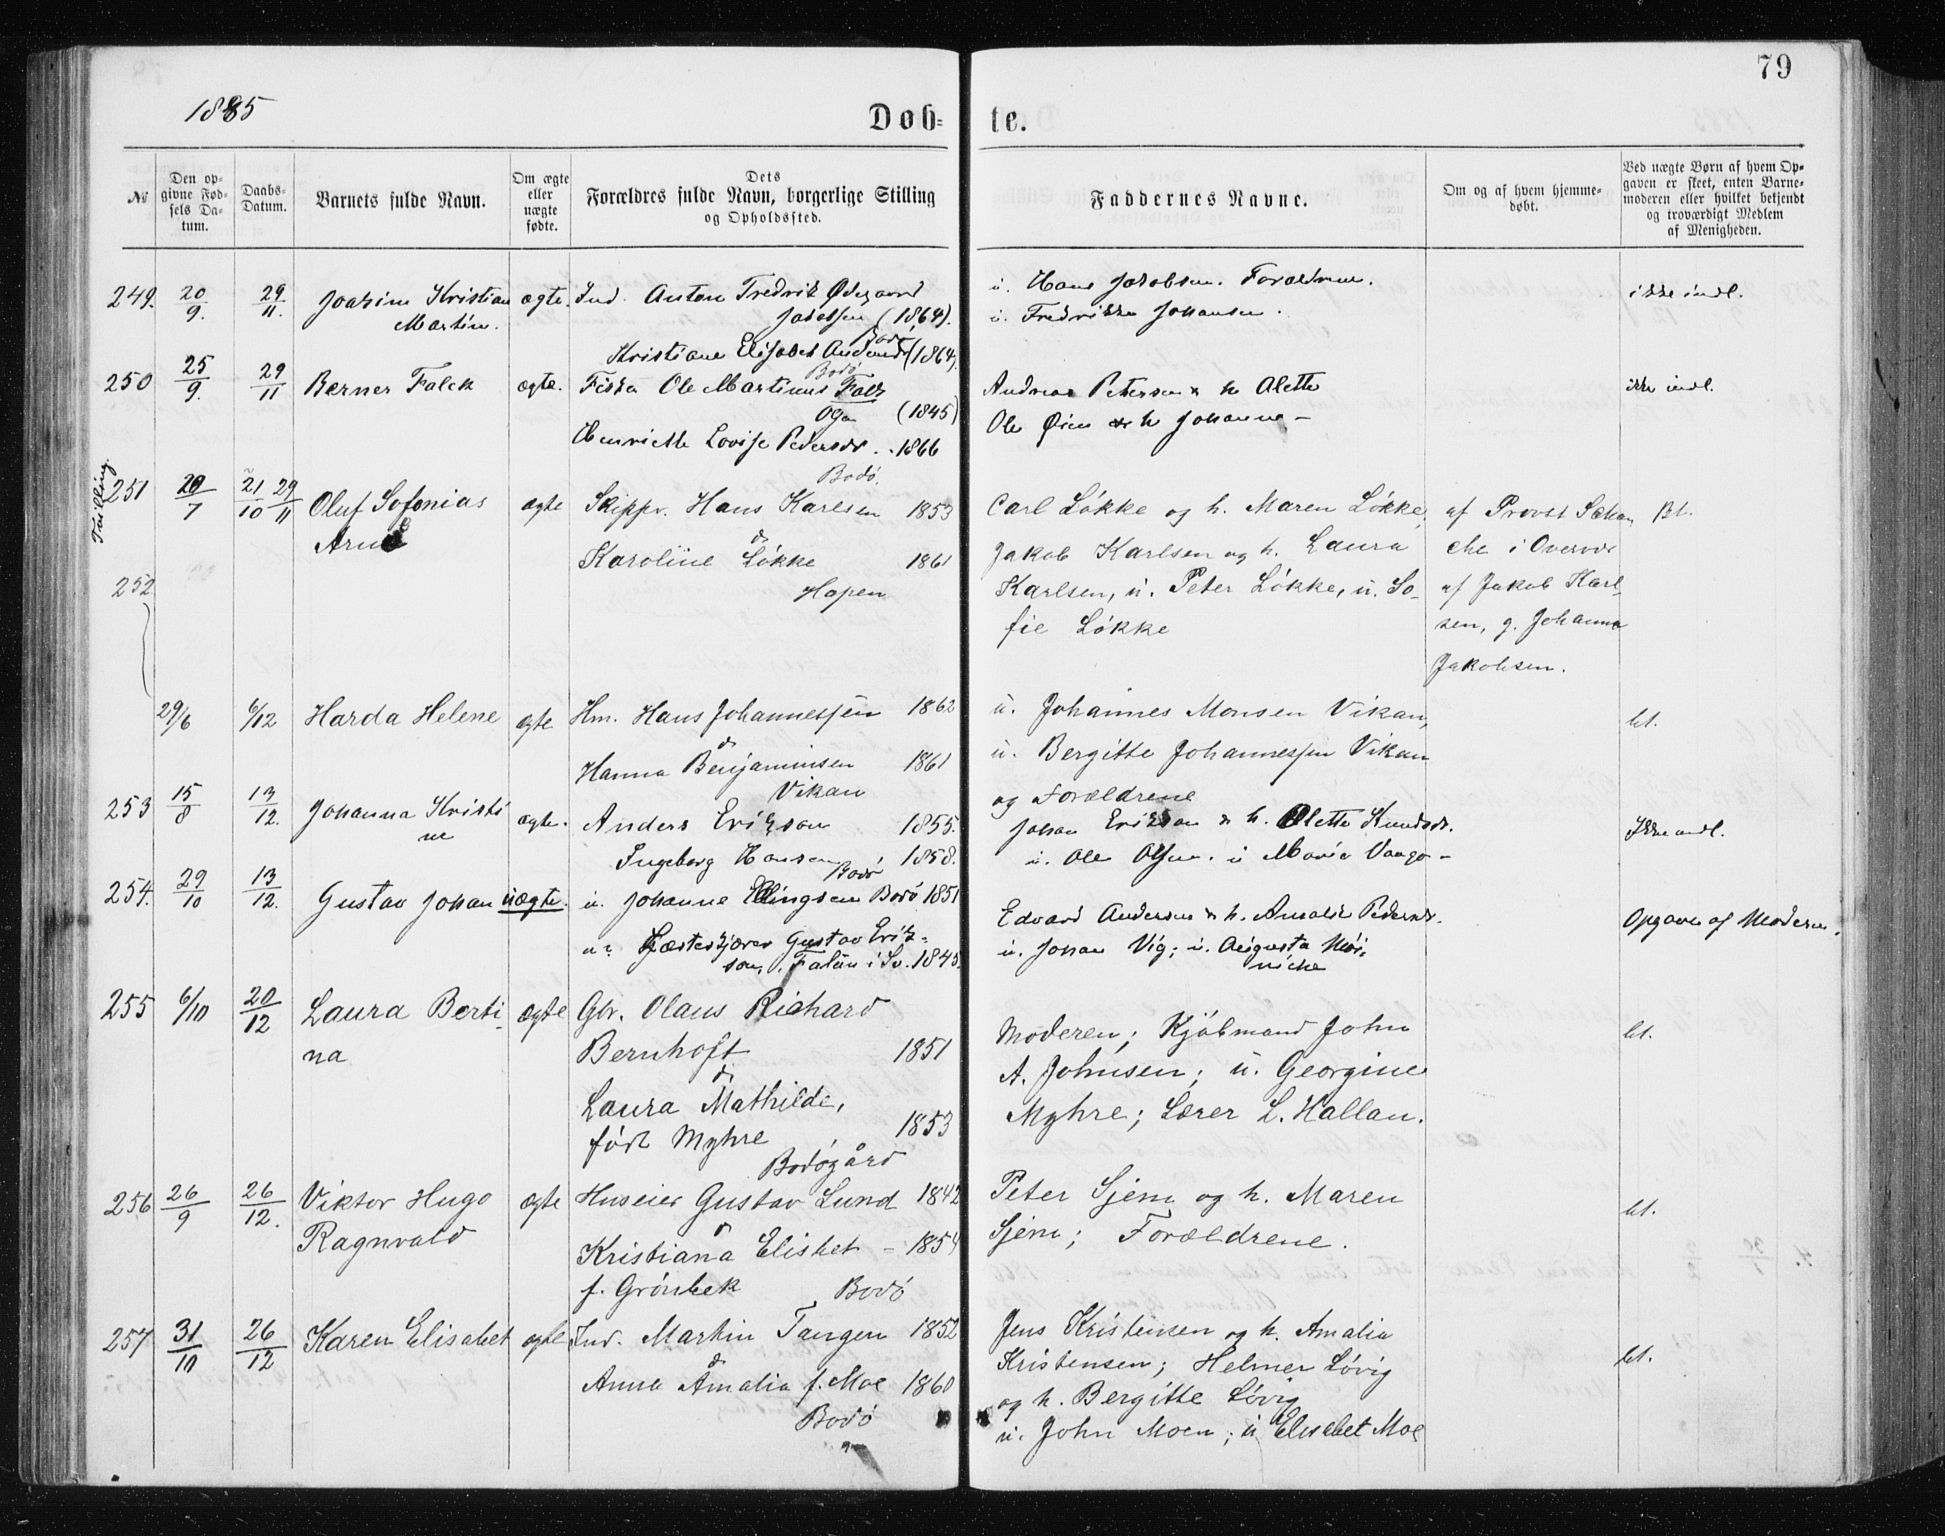 79
1885
Døb-te.
№
Den opgivne Fødsels Datum.
Daabs-Datum.
Barnets fulde Navn.
Om ægte eller uægte fødte.
Dets Forældres fulde Navn, borgerlige Stilling og Opholdssted.
Faddernes Navne.
Om og af hvem hjemmedøbt.
Ved uægte Børn af hvem Opgaven er skeet, enten Barnemoderen eller hvilket bekjendt og troværdigt Medlem af Menigheden.
249. 20/9. 29/11. Joakim Kristian ægte. Ind. Anton Fredrik Ødegaard u. Hans Jakobsen. Forældrene. ikke indl.
Martin. (1864). u. Fredrikke Johansen.
Kristiane Elisabet (1864) Bodø
250 25/9. 29/11 Berner Falck ægte. Fisker Ole Martinus Falk Andreas Petersen & h Alette ikke indl.
Oga (1845) Ole Øien & h Johanne –
Henriette Lovise Pedersdr. 1866
Bodø.
Tvilling
251 20/7 21/10 29/11 Oluf Sofonias ægte Skippr. Hans Karlsen 1853 Carl Løkke og h. Maren Løkke, af Provst Bt.
Arne & Jakob Karlsen og h. Laura i
252 Karoline Løkke 1861 Karlsen, u. Peter Løkke, u. So- af Jakob Karl-
Hopen fie Løkke sen, g. Johanna
Jakobsen.
29/6 6/12 Harda Helene ægte Hm. Hans Johannessen 1862 u. Johannes Monsen Vikan, bt.
& u. Bergitte Johannessen Vikan
Hanna Benjaminsen 1861
Vikan og Forældrene
253 15/8 13/12. Johanna Kristi ægte. Anders Erikson 1855. Johan Erikson & h. Olette Knudsdr. Ikke indl.
ne Ingeborg Hansen 1858. u. Ole Olsen. u Marie Vaage –
Bodø
254. 29/10 13/12. Gustav Johan uægte. u. Johanne Ellingsen Bodø 1851 Edvard Andersen & h. Amalie Pedersdr. Opgaven af Moderen.
u? Gustav Erik- u. Johan Vig; u. Augusta
son, Falun i Sv. 1845.
255 6/10 20/12 Laura Berti- ægte Gbr. Olaus Richard Moderen; Kjøbmand John bt.
na Bernhoft 1851 A. Johnsen; u. Georgine
& Myhre; Lærer L. Hallan.
Laura Mathilde,
født Myhre 1853
Bodøgård
256 26/9 26/12. Viktor Hugo ægte Huseier Gustav Lund 1842 Peter Sjem og h. Maren bt.
Ragnvald & Sjem; Forældrene.
Kristiana Elisbet – 1854
f. Grønbek Bodø
257 31/10 26/12 Karen Elisabet ægte Ind. Martin Tangen 1852 Jens Kristensen og h. Amalia bt.
& Kristensen; Helmer Løvig
Anna Amalia f. Moe 1860 og h. Bergitte Løvig
Bodø u. John Moen; u Elisabet Moe